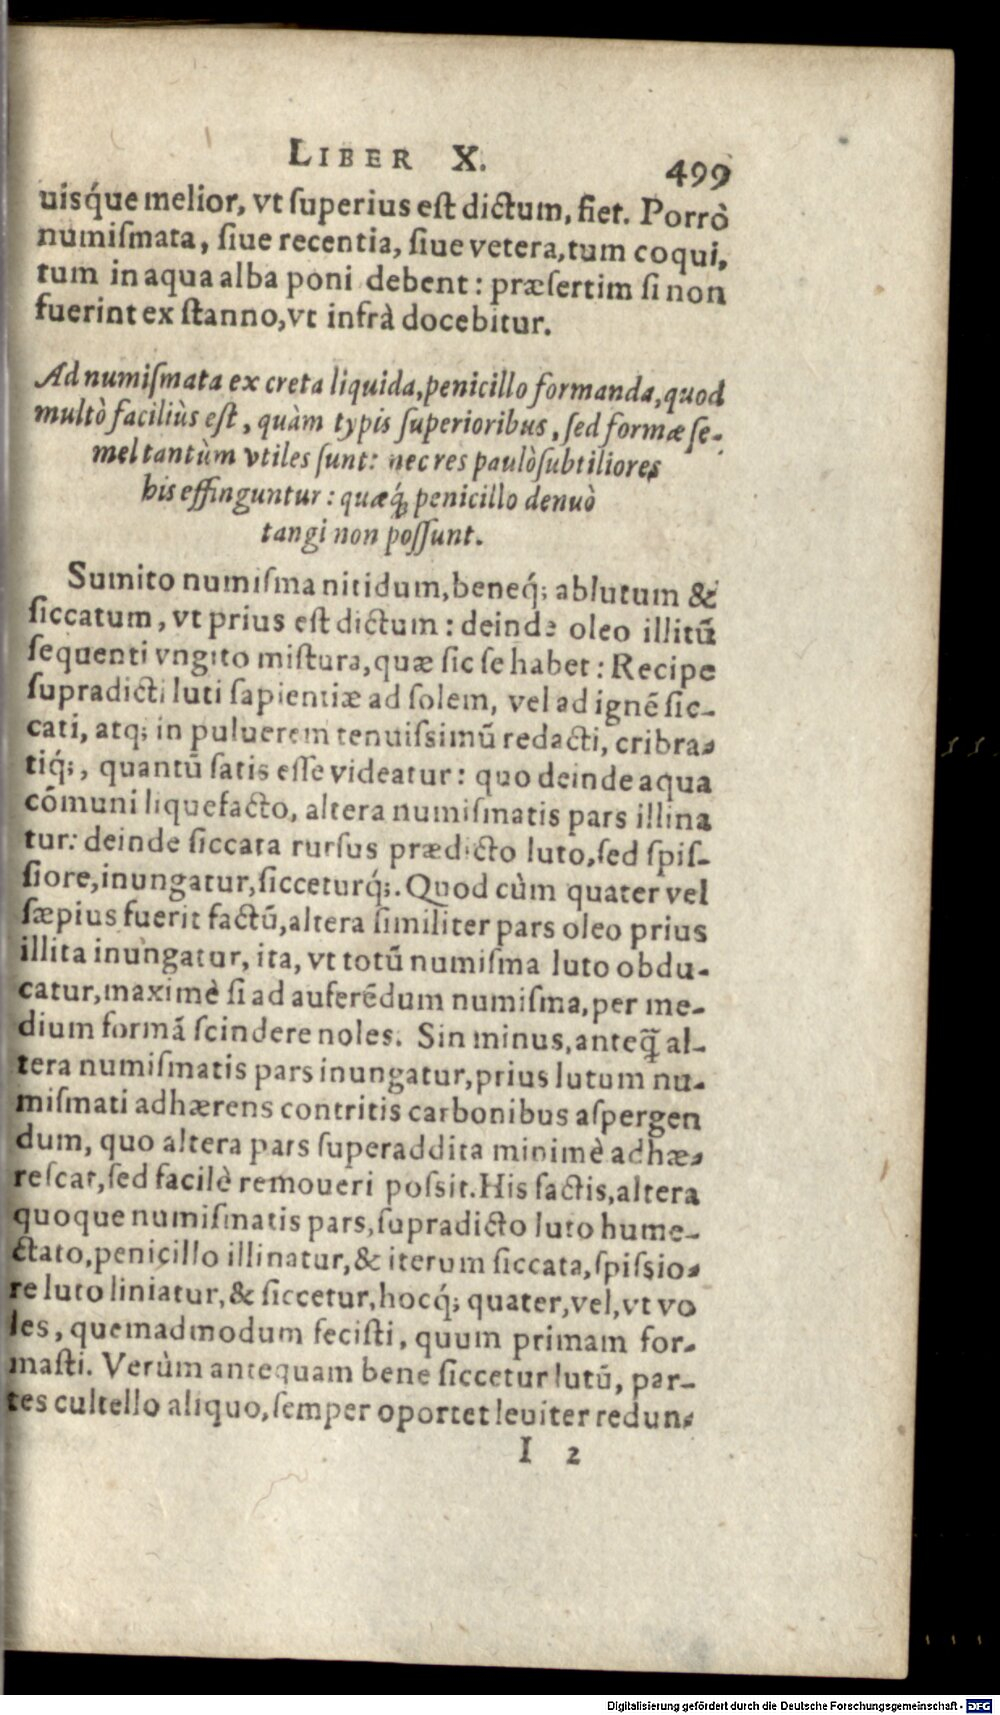 LIBER X. 499
uisq́ue melior, vt ſuperius eſt dictum, fiet. Porrò
numiſmata, ſiue recentia, ſiue vetera, tum coqui,
tum in aqua alba poni debent: præſertim ſi non
fuerint ex ſtanno, vt infrà docebitur.
Ad numiſmata ex creta liquida, penicillo formanda, quod
multò faciliùs eſt, quàm typis ſuperioribus, ſed formæ ſe-
mel tantùm vtiles ſunt: nec res paulò ſubtiliores
his effinguntur: quæq́; penicillo denuò
tangi non poſſunt.
Sumito numiſma nitidum, beneq́; ablutum &
ſiccatum, vt prius eſt dictum: deinde oleo illitū
ſequenti vngito miſtura, quæ ſic ſe habet: Recipe
ſupradicti luti ſapientiæ ad ſolem, vel ad ignē ſic-
cati, atq; in puluerem tenuiſsimū redacti, cribra-
tiq́;, quantū ſatis eſſe videatur: quo deinde aqua
cōmuni liquefacto, altera numiſmatis pars illina
tur: deinde ſiccata rurſus prædicto luto, ſed ſpiſ-
ſiore, inungatur, ſicceturq́;. Quod cùm quater vel
ſæpius fuerit factū, altera ſimiliter pars oleo prius
illita inungatur, ita, vt totū numiſma luto obdu-
catur, maximè ſi ad auferēdum numiſma, per me-
dium formā ſcindere noles. Sin minus, anteq̃ al-
tera numiſmatis pars inungatur, prius lutum nu-
miſmati adhærens contritis carbonibus aſpergen
dum, quo altera pars ſuperaddita minimè adhæ-
reſcat, ſed facilè remoueri poſsit. His factis, altera
quoque numiſmatis pars, ſupradicto luto hume-
ctato, penicillo illinatur, & iterum ſiccata, ſpiſsio-
re luto liniatur, & ſiccetur, hocq́; quater, vel, vt vo
les, quemadmodum feciſti, quum primam for-
maſti. Verùm antequam bene ſiccetur lutū, par-
tes cultello aliquo, ſemper oportet leuiter redun-
I 2
Digitalisierung gefördert durch die Deutsche Forschungsgemeinschaft - DFG